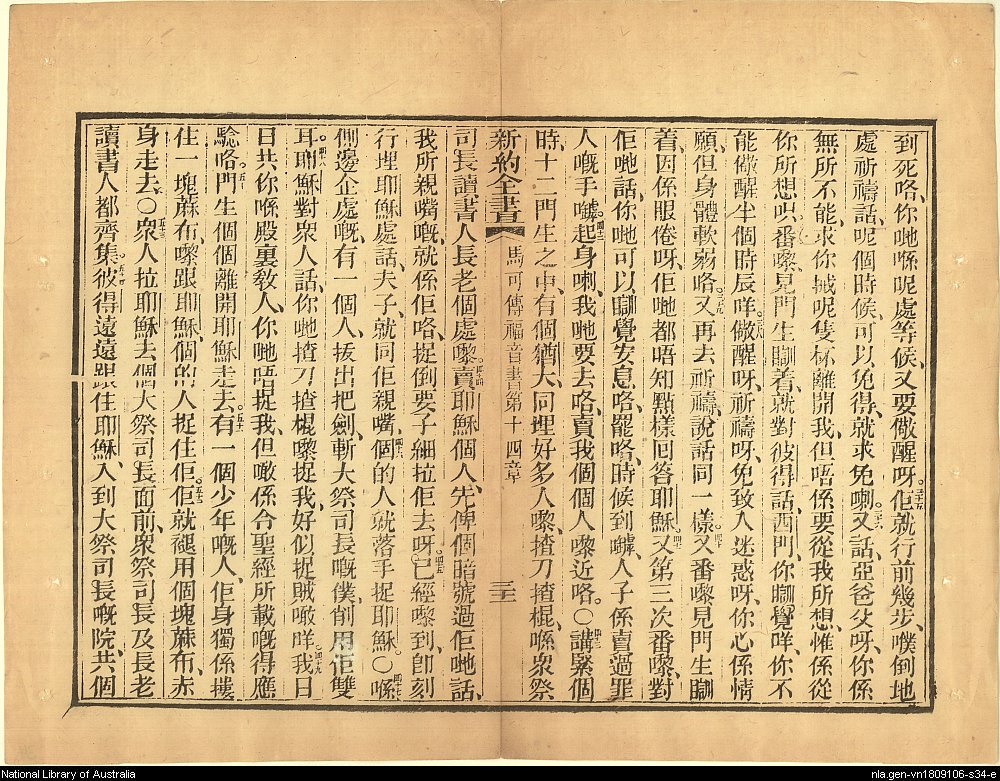 到死咯、你哋喺呢處等候、又要儆醒呀。三十五佢就行前幾步、噗倒地
處祈禱話、呢個時候、可以免得、就求免喇。三十六又話、亞爸父呀、你係
無所不能、求你城呢隻杯離開我、但唔係要從我所想、惟係從
你所想㕭。番嚟、見門生瞓着、就對彼得話、西門、你瞓覺咩、你不
能儆醒半個時辰咩。三十八儆醒呀、祈禱呀、免致入迷惑呀、你心係情
願、但身體軟弱咯。三十九又再去祈禱、說話同一樣。四十又番嚟、見門生瞓
着、因係眼倦呀、佢哋都唔知點樣回答耶穌。四十一又第三次番嚟、對
佢哋話、你哋可以瞓覺安息咯、罷咯、時候到嚹、人子係賣過罪
人嘅手嚹。四十二起身喇、我哋要去咯、賣我個個人嚟近咯。〇四十三講緊個
時、十二門生之中、有個猶大、同埋好多人嚟、揸刀揸棍、喺衆祭
新約全書 馬可傳福音書第十四章 三十二
司長讀書人長老個處嚟。四十四賣耶穌個人、先俾個暗號過佢哋話、
我所親嘴嘅、就係佢咯、捉倒要子細拉佢去呀。四十五已經嚟到、卽刻
行埋耶穌處話、夫子、就同佢親嘴。四十六個的人就落手捉耶穌。〇四十七喺
側邊企處嘅、有一個人、拔出把劍、斬大祭司長嘅僕、削用佢雙
耳。四十八耶穌對衆人話、你哋揸刀揸棍嚟捉我、好似捉賊噉咩。四十九我日
日共你喺殿裏敎人、你哋唔捉我、但噉係合聖經所載嘅得應
驗咯。五十門生個個離開耶穌走去。五十一有一個少年嘅人、佢身獨係摟
住一塊蔴布、嚟跟耶穌、個的人捉住佢。五十二佢就褪用個塊蔴布、赤
身走去。〇五十三衆人拉耶穌去個大祭司長面前、衆祭司長及長老
讀書人都齊集。五十四彼得遠遠跟住耶穌、入到大祭司長嘅院、共個
National Library of Australia
nla.gen-vn1809106-s34-e